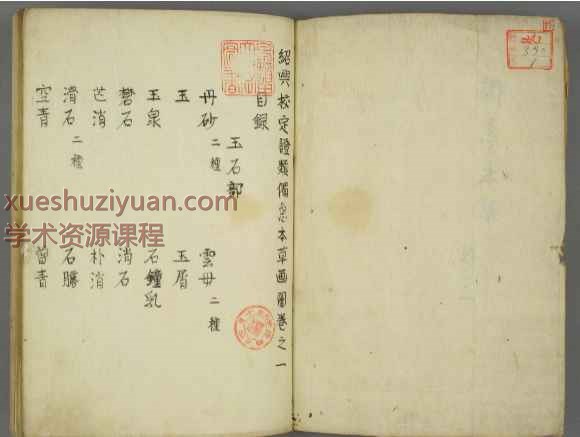 紹興校定證類俻急本草画圖巻之一
目録
玉石部
丹砂 二種 雲母 二種
玉 玉屑
玉泉 石鐘乳
礬石 消石
芒消 朴消
滑石 二種 石膽
空青 曾青
xueshuziyuan.com
学术资源课程